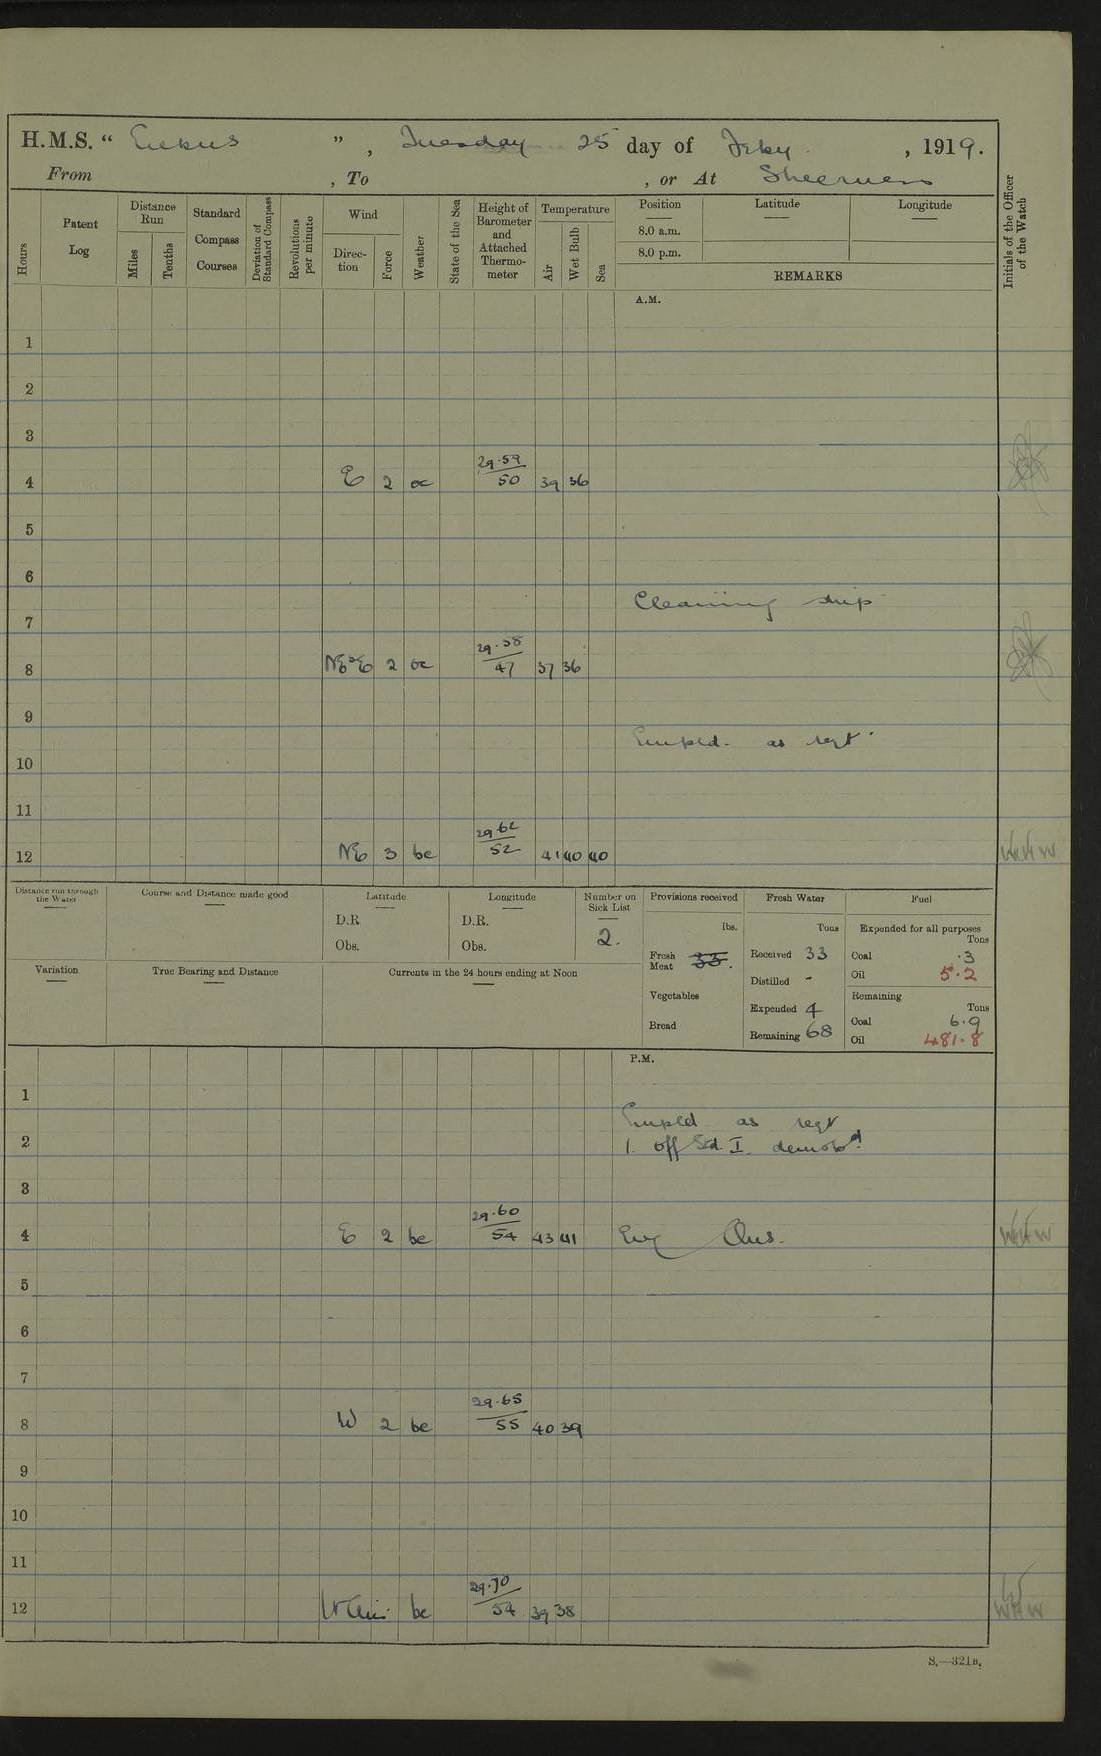 H.M.S. “ Erebus ” , Tuesday 25 day of Feby , 1919.
From , To , or At Sheerness
Hours
Patent Log
Distance Run
Miles
Tenths
Standard Compass Courses
Deviation of Standard Compass
Revolutions per minute
Wind
Direction
Force
Weather
State of the Sea
Height of Barometer and Attached Thermometer
Temperature
Air
Wet Bulb
Sea
Position
8.0 a.m.
8.0 p.m.
Latitude
Longitude
REMARKS
Initials of the Officer of the Watch
A.M.
1
2
3
4 E 2 oc 29.59/50 39 36
5
6
Cleaning ship
7
8 NE 2 oc 29.58/47 37 36
9
Empld. as reqt.
10
11
12 NE 3 bc 29.62/52 41 40 40 WHW
Distance run through the Water
Course and Distance made good
Latitude
D.R
Obs.
Longitude
D.R.
Obs.
Number on Sick List
2.
Provisions received
lbs.
Fresh Meat 33.
Vegetables
Bread
Fresh Water
Tons
Received 33
Distilled -
Expended 4
Remaining 68
Fuel
Expended for all purposes
Tons
Coal .3
Oil 5.2
Remaining
Tons
Coal 6.9
Oil 481.8
Variation
True Bearing and Distance
Currents in the 24 hours ending at Noon
P.M.
1
Empld as reqt
2 1 Off Std. I. demobd.
3
4 E 2 bc 29.60/54 43 41 Evg Qus. WHW
5
6
7
8 W 2 bc 29.65/55 40 39
9
10
11
12 Lt Airs bc 29.70/54 39 38 WHW
S.—321B.